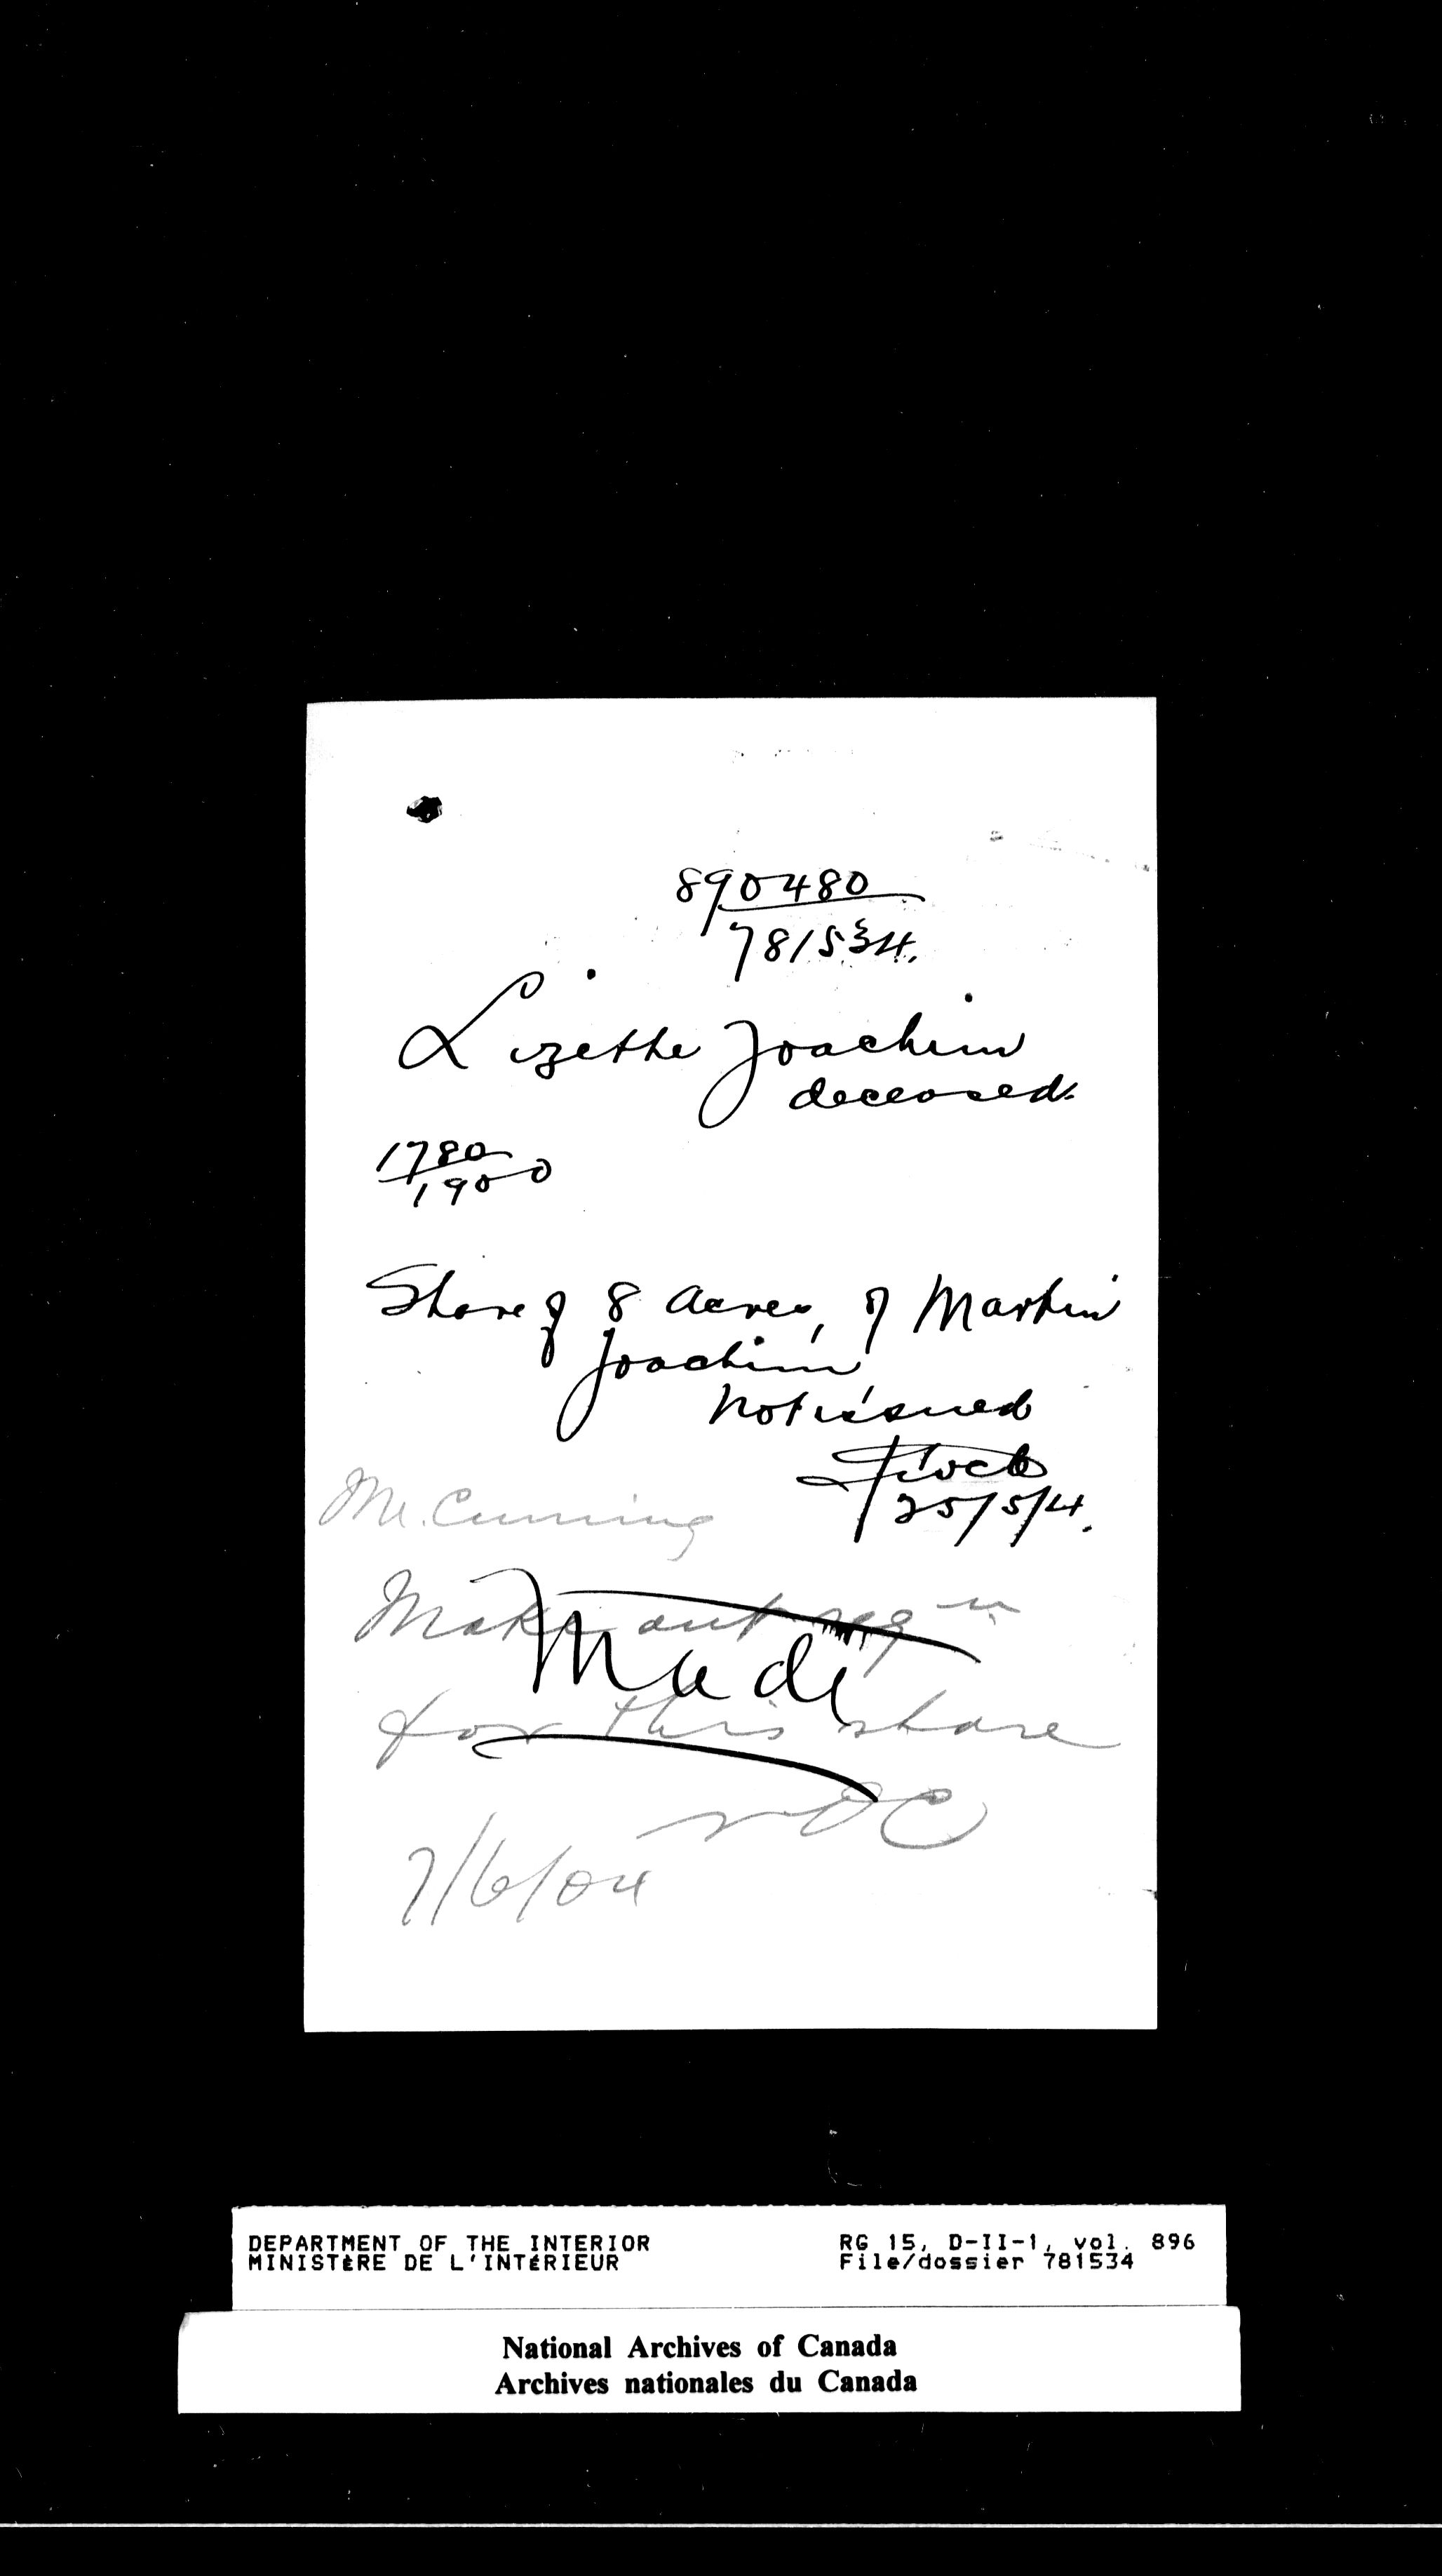 890480
781534.
Lizette Joachim
deceased.
1780
1900
Share of 8 acres, of Martin
Joachim
not issued
25/5/4.
Mr. Cunning
Make out reqn
Made
for this share
7/6/04
DEPARTMENT OF THE INTERIOR
MINISTÈRE DE L'INTÉRIEUR
RG 15, D-II-1, vol. 896
File/dossier 781534
National Archives of Canada
Archives nationales du Canada